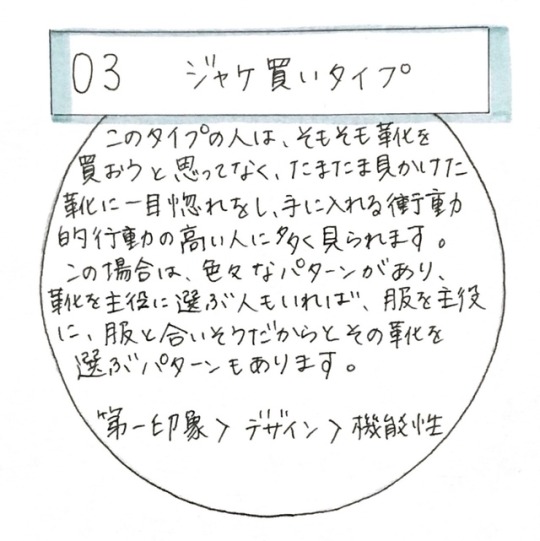 03 ジャケ買いタイプ
このタイプの人は、そもそも靴を
買おうと思ってなく、たまたま見かけた
靴に一目惚れをし、手に入れる衝動
的行動の高い人に多く見られます。
この場合は、色々なパターンがあり、
靴を主役に選ぶ人もいれば、服を主役
に、服と合いそうだからとその靴を
選ぶパターンもあります。
第一印象>デザイン>機能性